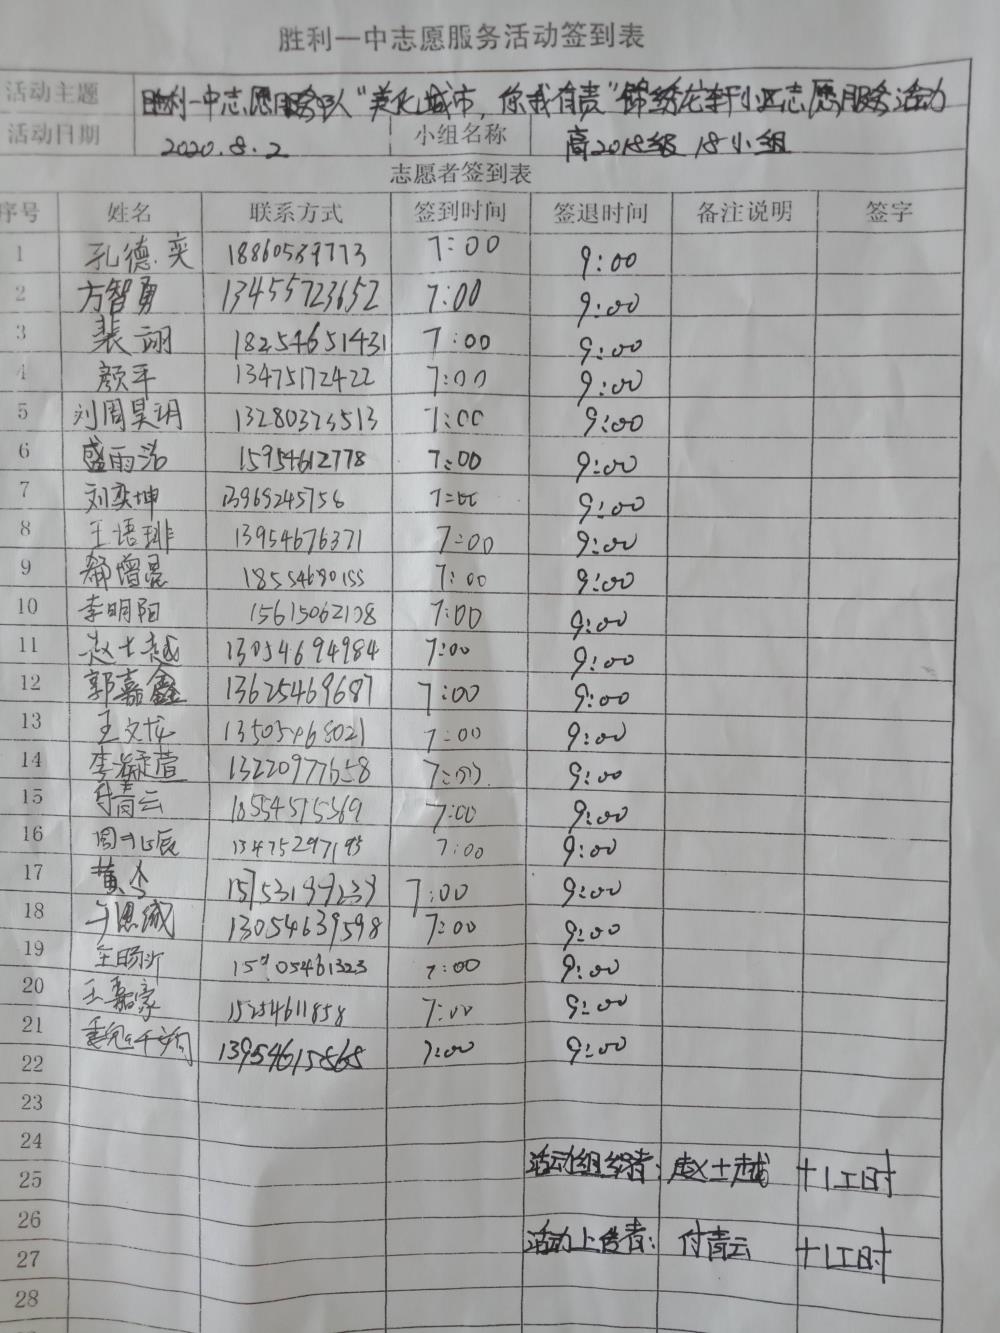 胜利一中志愿服务活动签到表
活动主题 胜利一中志愿服务队“美化城市，你我有责”锦绣龙轩小区志愿服务活动
活动日期 2020.8.2 小组名称 高2018级 18小组
志愿者签到表
序号 姓名 联系方式 签到时间 签退时间 备注说明 签字
1 孔德奕 18860539773 7:00 9:00
2 方智勇 13455723652 7:00 9:00
3 裴翊 18254651431 7:00 9:00
4 颜平 13475172422 7:00 9:00
5 刘周昊玥 13280323513 7:00 9:00
6 盛雨洁 15954612778 7:00 9:00
7 刘奕坤 13969245758 7:00 9:00
8 王语琲 13954676371 7:00 9:00
9 增晨 18554680155 7:00 9:00
10 李明阳 7:00 9:00
11 赵士越 13054694984 7:00 9:00
12 郭嘉鑫 13625469687 7:00 9:00
13 王文龙 13505468021 7:00 9:00
14 李凝萱 13220977658 7:00 9:00
15 付青云 18554515369 7:00 9:00
16 周 辰 13475297195 7:00 9:00
17 黄 15753199239 7:00 9:00
18 13054639598 7:00 9:00
19 7:00 9:00
20 王嘉豪 15254611858 7:00 9:00
21 13954615868 7:00 9:00
22
23
24
25 活动组织者: 赵士越 +1工时
26
27 活动上传者: 付青云 +1工时
28